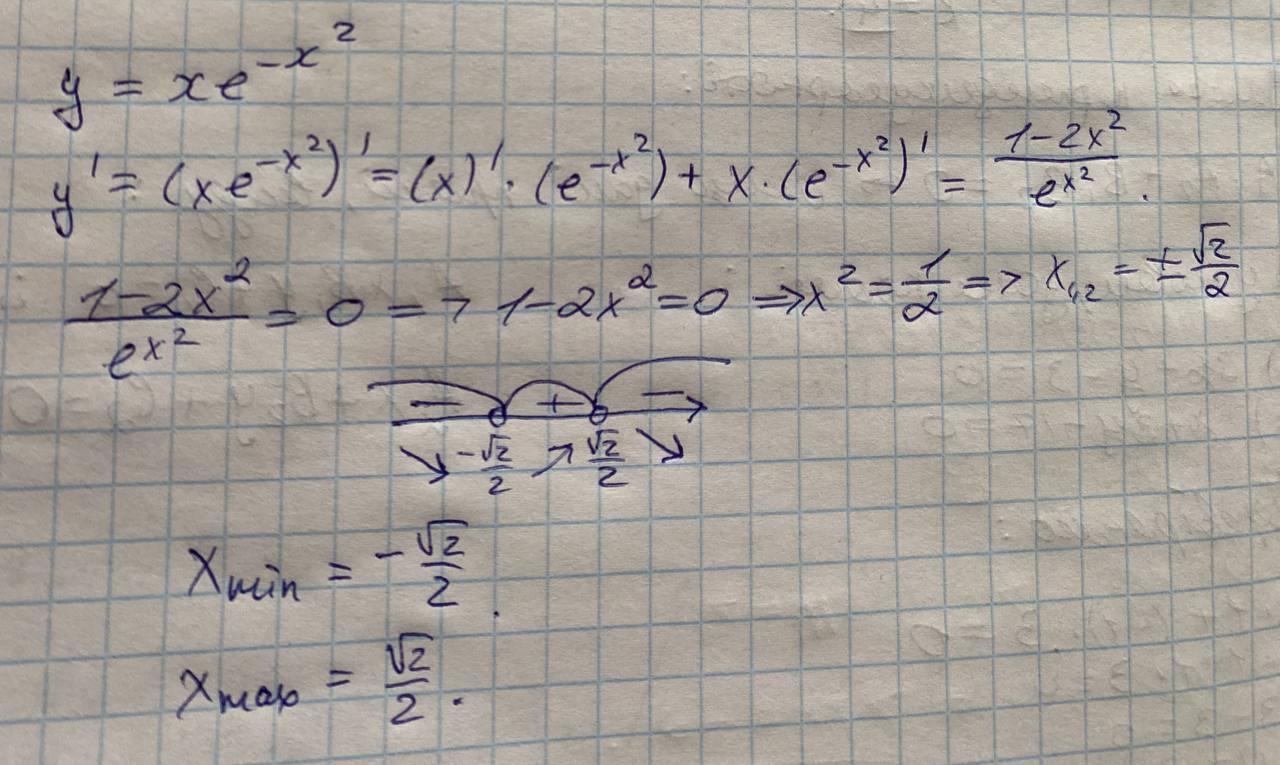 y = xe^{-x^2}
y' = (xe^{-x^2})' = (x)' · (e^{-x^2}) + x · (e^{-x^2})' = \frac{1-2x^2}{e^{x^2}} .
\frac{1-2x^2}{e^{x^2}} = 0 => 1-2x^2 = 0 => x^2 = \frac{1}{2} => x_{1,2} = ± \frac{√2}{2}
− + −
↘ -\frac{√2}{2} ↗ \frac{√2}{2} ↘
x_{min} = -\frac{√2}{2} .
x_{max} = \frac{√2}{2} .